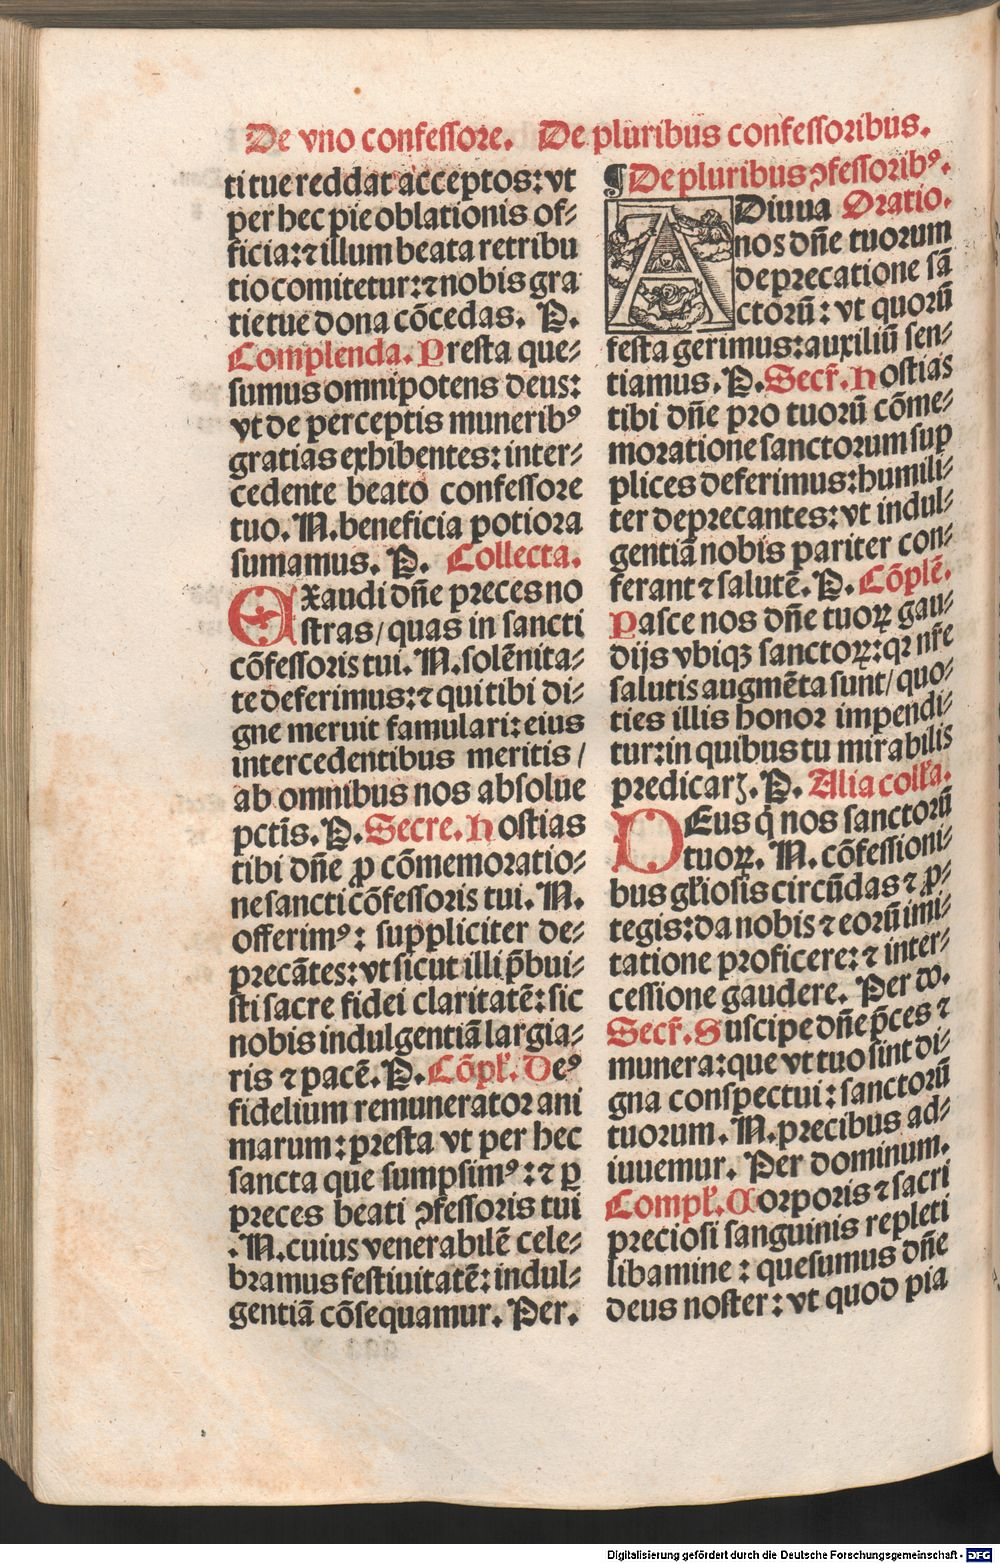 De vno confessore. De pluribus confessoribus.
ti tue reddat acceptos: vt
per hec pie oblationis of⸗
ficia: ⁊ illum beata retribu
tio comitetur: ⁊ nobis gra
tie tue dona cōcedas. P.
Complenda. Presta que⸗
sumus omnipotens deus:
vt de perceptis muneribꝰ
gratias exhibentes: inter⸗
cedente beato confessore
tuo. N. beneficia potiora
sumamus. P. Collecta.
Exaudi dn̄e preces no
stras/ quas in sancti
cōfessoris tui. N. solēnita⸗
te deferimus: ⁊ qui tibi di⸗
gne meruit famulari: eius
intercedentibus meritis/
ab omnibus nos absolue
pctīs. P. Secre. Hostias
tibi dn̄e ꝓ cōmemoratio⸗
ne sancti cōfessoris tui. N.
offerimꝰ: suppliciter de⸗
precātes: vt sicut illi p̄bui⸗
sti sacre fidei claritatē: sic
nobis indulgentiā largia⸗
ris ⁊ pacē. P. Cōpł. Deꝰ
fidelium remunerator ani
marum: presta vt per hec
sancta que sumpsimꝰ: ⁊ ꝑ
preces beati ꝯfessoris tui
.N. cuius venerabilē cele⸗
bramus festiuitatē: indul⸗
gentiā cōsequamur. Per.
¶ De pluribus ꝯfessoribꝰ.
ADiuua Oratio.
nos dn̄e tuorum
deprecatione sā
ctorū: vt quorū
festa gerimus: auxiliū sen⸗
tiamus. P. Secr̄. Hostias
tibi dn̄e pro tuorū cōme⸗
moratione sanctorum sup
plices deferimus: humili⸗
ter deprecantes: vt indul⸗
gentiā nobis pariter con⸗
ferant ⁊ salutē. P. Cōplē.
Pasce nos dn̄e tuoꝝ gau⸗
dijs vbiqꝫ sanctoꝝ: qꝛ nr̄e
salutis augmēta sunt/ quo⸗
ties illis honor impendi⸗
tur: in quibus tu mirabilis
predicarꝫ. P. Alia colł̄a.
DEus q̇ nos sanctorū
tuoꝝ. N. cōfessioni⸗
bus gl̄iosis circūdas ⁊ ꝓ⸗
tegis: da nobis ⁊ eorū imi⸗
tatione proficere: ⁊ inter⸗
cessione gaudere. Per do.
Secr̄. Suscipe dn̄e p̄ces ⁊
munera: que vt tuo sint di⸗
gna conspectui: sanctorū
tuorum. N. precibus ad⸗
iuuemur. Per dominum.
Compł. Corporis ⁊ sacri
preciosi sanguinis repleti
libamine: quesumus dn̄e
deus noster: vt quod pia
Digitalisierung gefördert durch die Deutsche Forschungsgemeinschaft - DFG